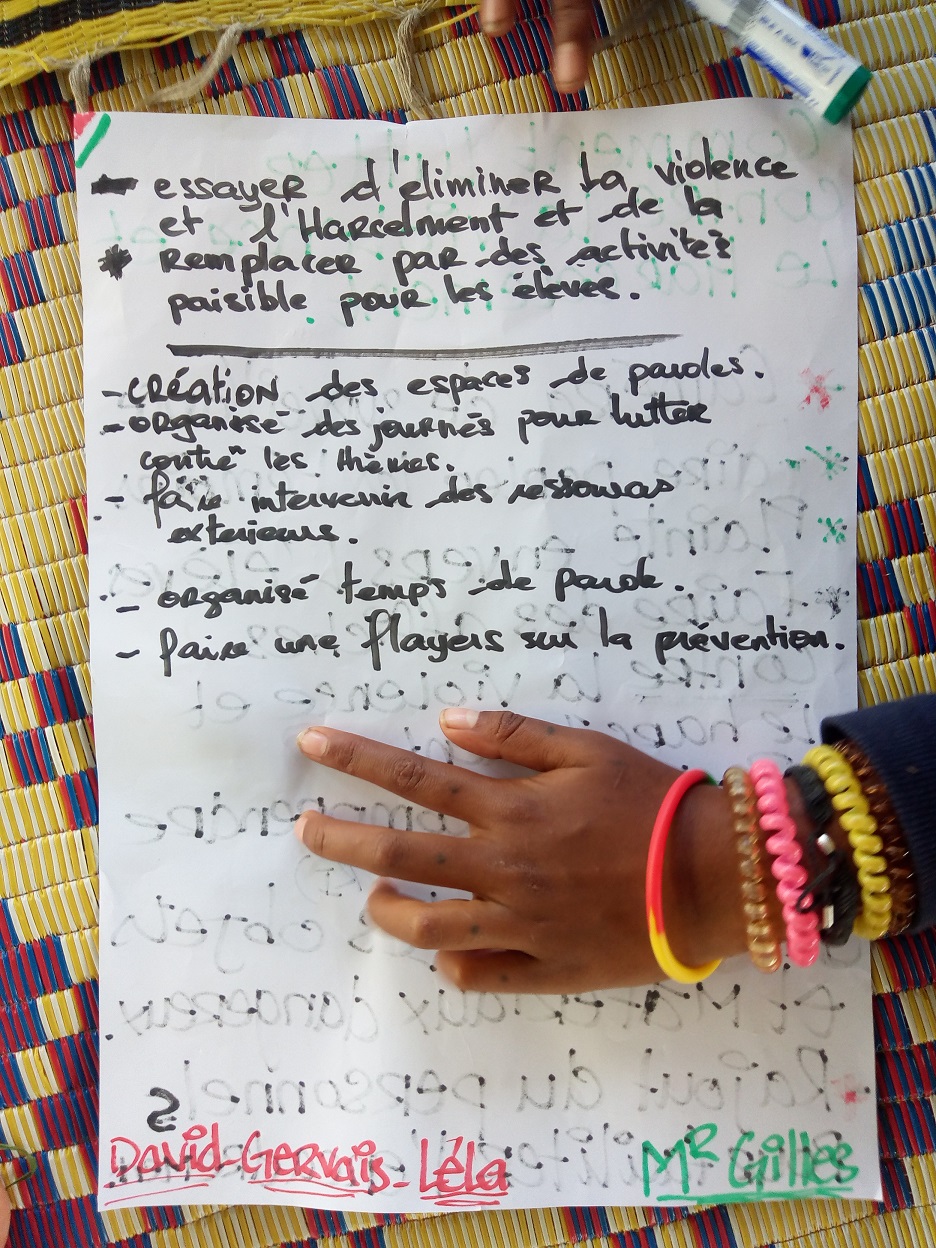 - essayer d'eliminer la violence
et l'Harcelment et de la
* Remplacer par des activités
paisible pour les élèves.
- CRÉATION des espaces de paroles.
- organisé des journés pour lutter
contre les thèmes.
- faire intervenir des ressources
exterieurs.
- organisé temps de parole.
- faire une flayers sur la prévention.
S
David-Gervais-Léla
MR Gilles